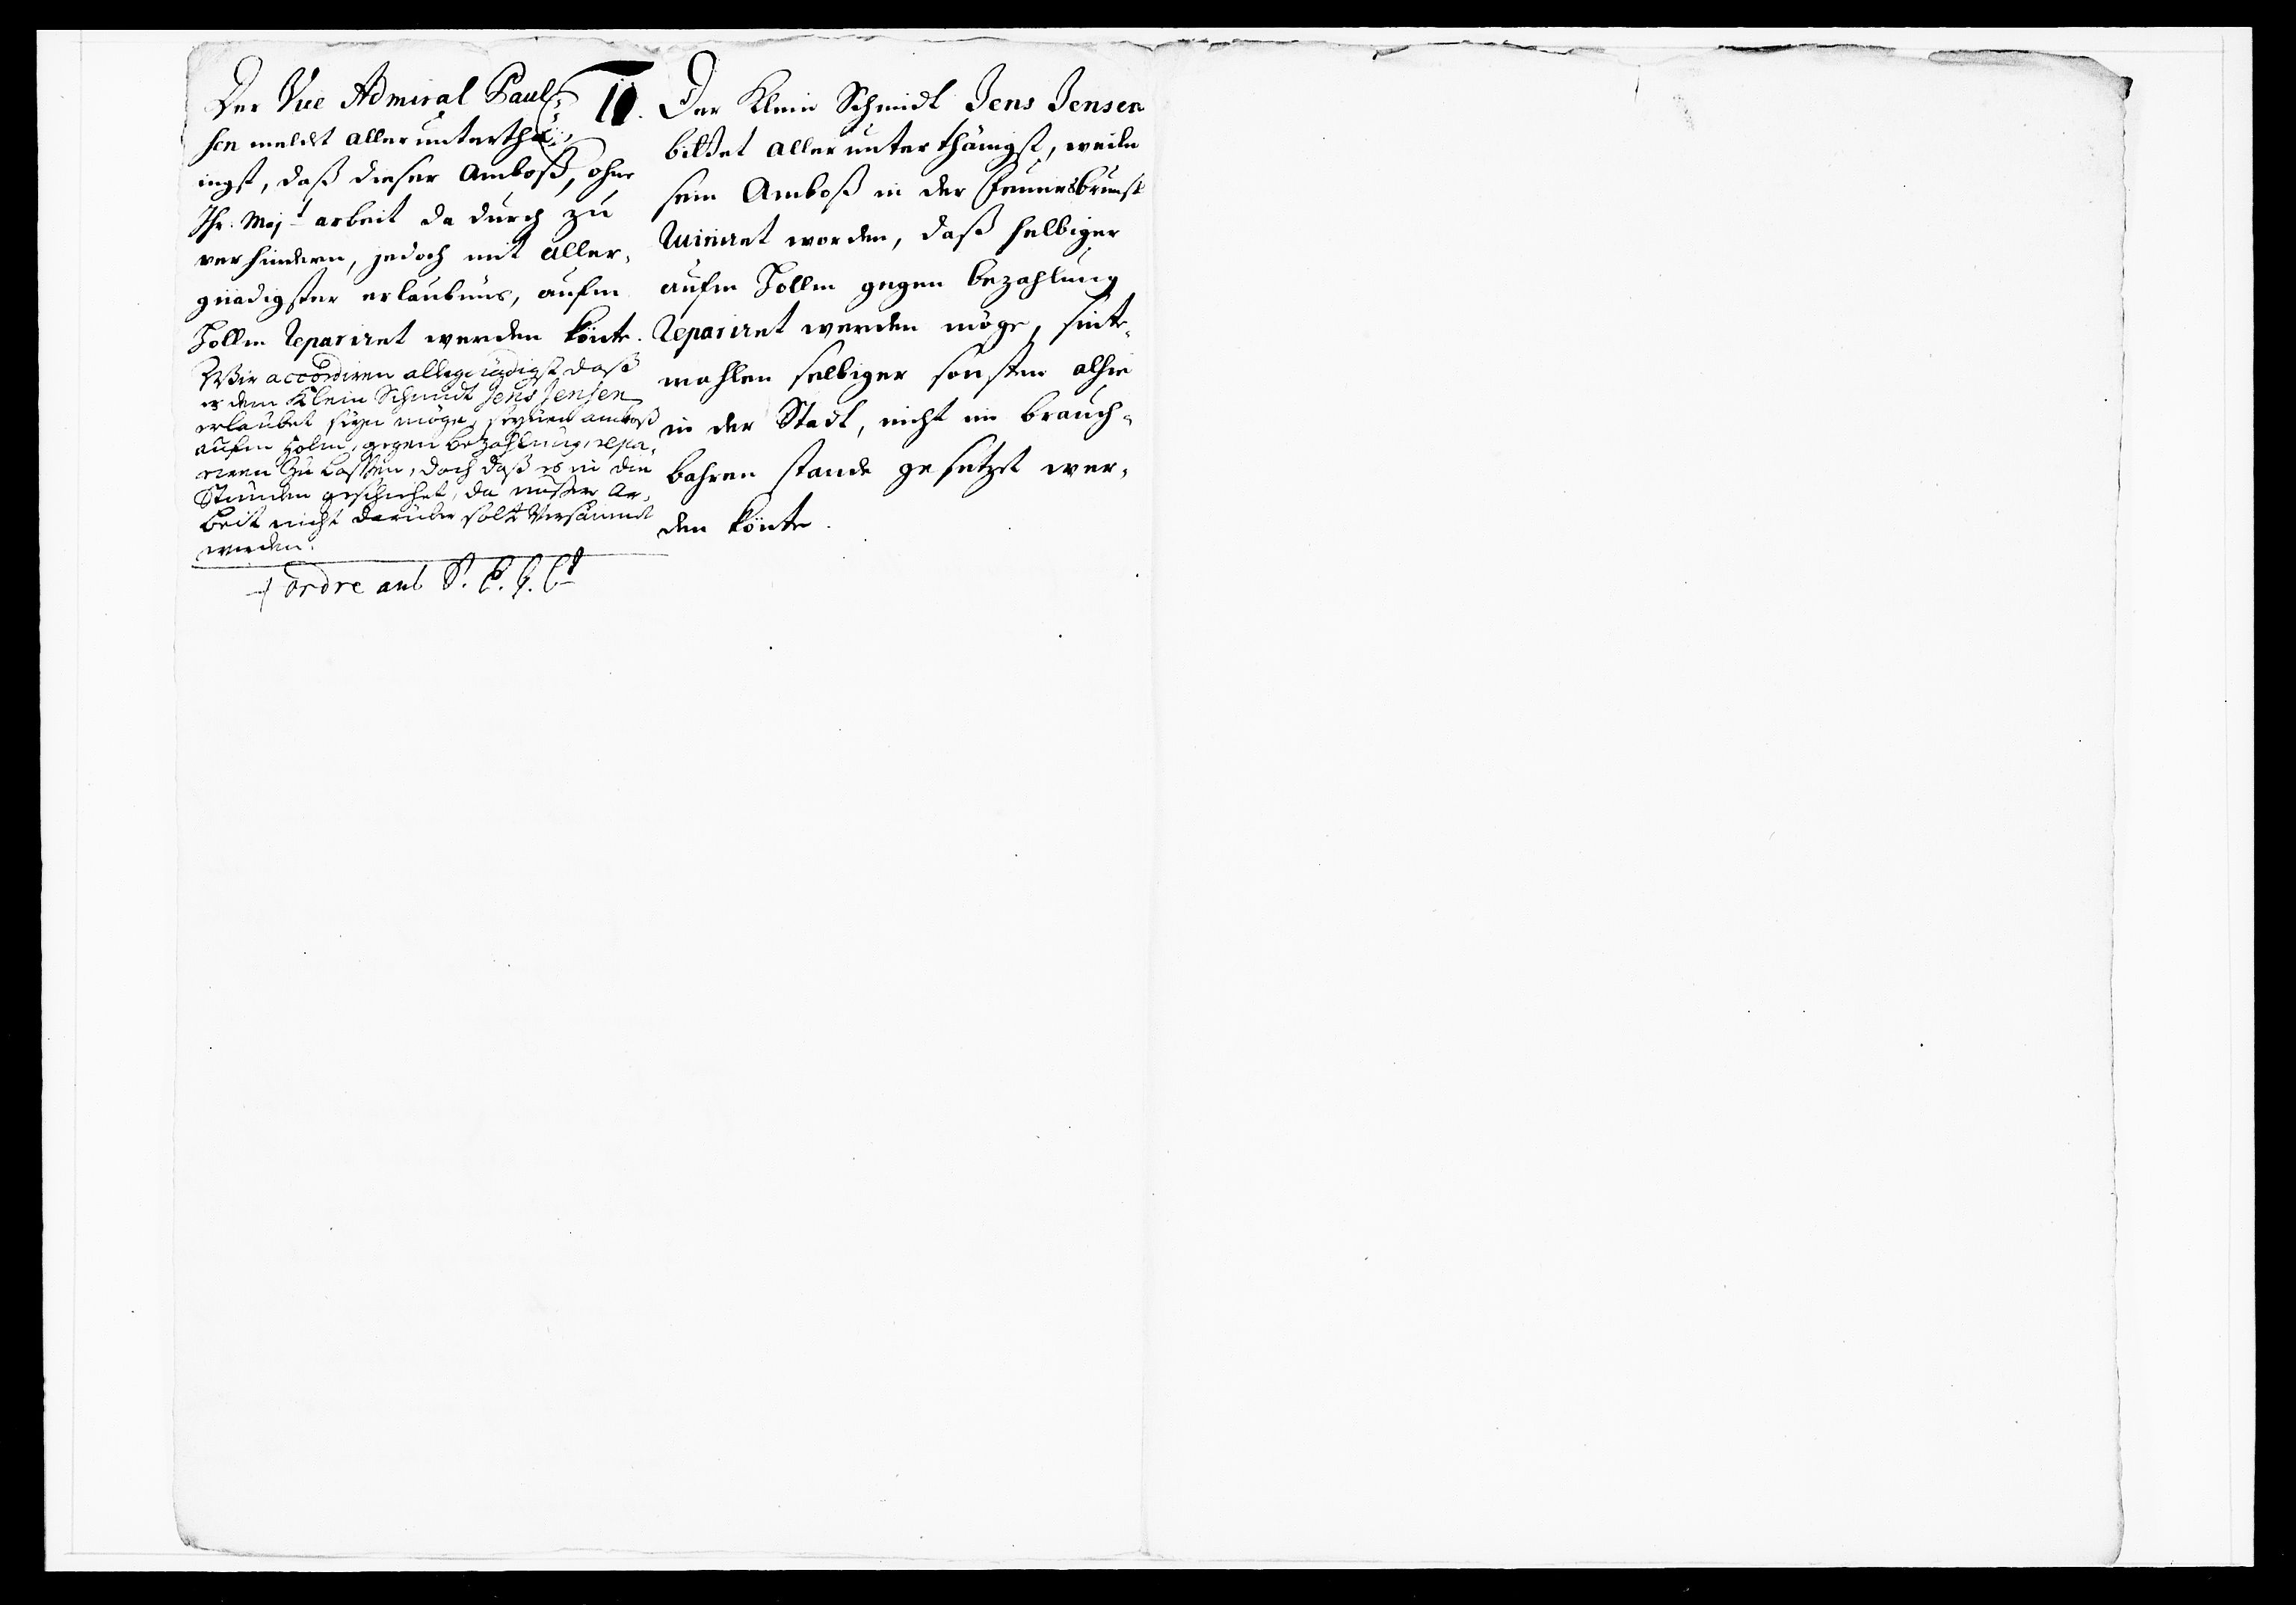 Der Vice Admiral Paul-
sen meldet allerunterthä-
nigst, daß dieser Amboß, ohne
Ihr. Maj.t arbeit da durch zu
verhindern, jedoch mit aller-
gnädigster erlaubnüs, aufm
Hollm repariret werden könte.
Wir accordiren allergnädigst daß
es dem Klein Schmidt Jens Jensen
erlaubet seyn möge, seynen amboß
aufm Holm, gegen bezahlung, repa-
riren zu lassen, doch daß es in die
Stunden geschiehet, da unser Ar-
beit nicht darüber solte versäumt
werden.
ordre
10.
Der Klein Schmidt Jens Jensen
bittet allerunterthänigst, weiln
sein Amboß in der Feuersbrunst
ruiniret worden, daß selbiger
aufm Hollm gegen bezahlung
repariret werden möge, sinte-
mahlen selbiger sonsten alhie
in der Stadt, nicht im brauch-
bahren stande gesetzet wer-
den könte.